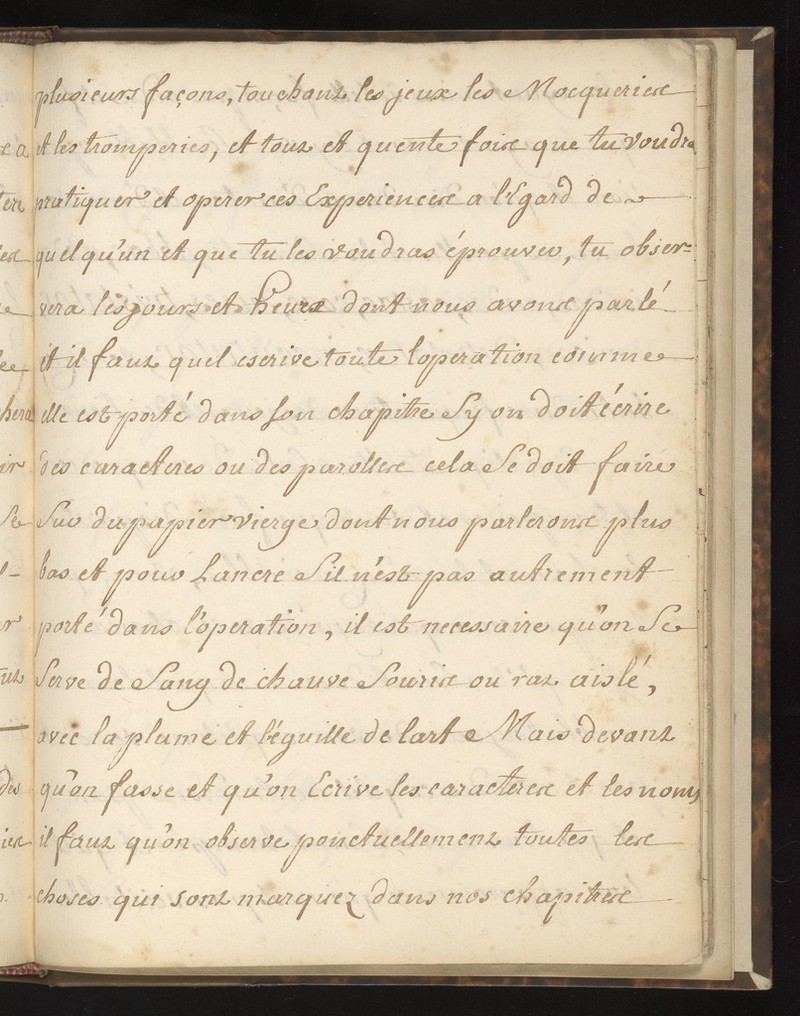 plusieurs façons, touchant les jeux les Mocqueries
et les tromperies, et tout et quente fois que tu voudra
pratiquer et operer ces Experiences a l'Egard de
quelqu'un et que tu les voudras éprouver, tu obser-
vera les jours et heures dont nous avons parlé
et il faut quel escrive toute loperation comme
elle est porté dans son chapitre Sy on doit écrire
des caracteres ou des parolles cela Se doit faire
Sur du papier vierge dont nous parlerons plus
bas et pour Lancre Sil n'est pas autrement
porté dans l'operation, il est necessaire qu'on Se
Serve de Sang de chauve Souris ou rat aislé,
avec la plume et l'eguille de lart Mais devant
qu'on fasse et qu'on Ecrive les caracteres et les noms
il faut qu'on observe ponctuellement toutes les
choses qui sont marquez dans nos chapitres